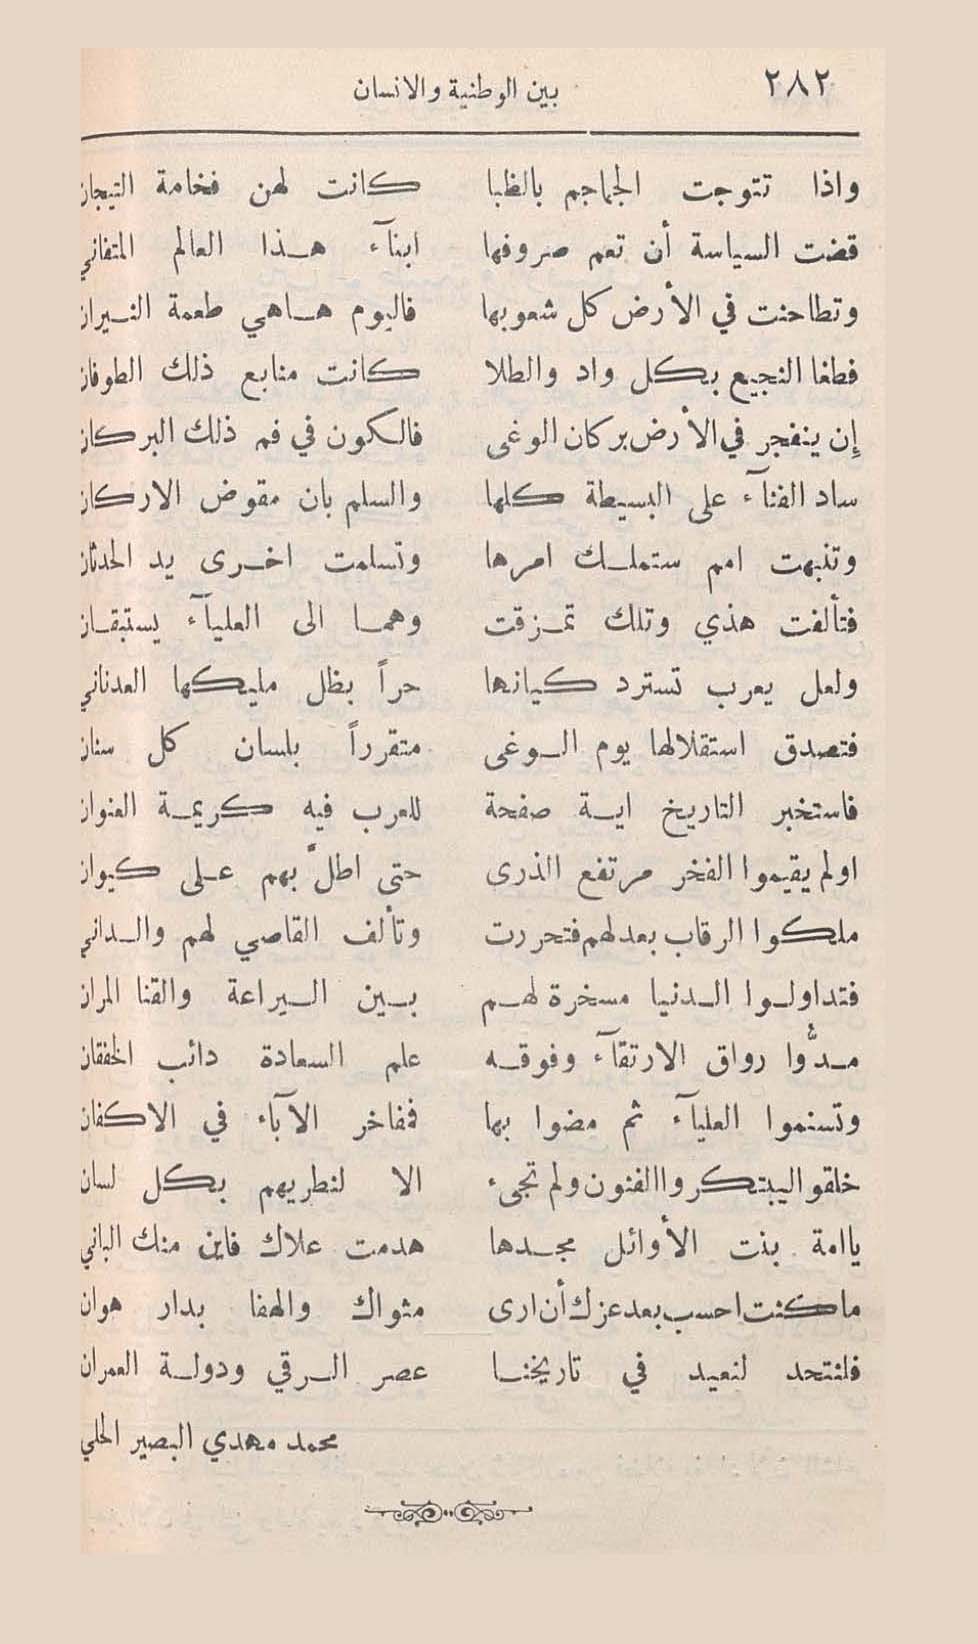 ٢٨٢ بين الوطنية والانسان
واذا تتوجت الجماجم بالظبا كانت لهن فخامة التيجان
قضت السياسة أن تعم صروفها ابنآء هذا العالم المتفاني
وتطاحنت في الأرض كل شعوبها فاليوم هاهي طعمة النيران
فطغا النجيع بكل واد والطلا كانت منابع ذلك الطوفان
إن ينفجر في الأرض بركان الوغى فالكون في فم ذلك البركان
ساد الفنآء على البسيطة كلها والسلم بان مقوض الاركان
وتنبهت امم ستملك امرها وتسلمت اخرى يد الحدثان
فتألفت هذي وتلك تمزقت وهما الى العليآء يستبقان
ولعل يعرب تسترد كيانها حراً بظل مليكها العدناني
فتصدق استقلالها يوم الوغى متقرراً بلسان كل سنان
فاستخبر التاريخ اية صفحة للعرب فيه كريمة العنوان
اولم يقيموا الفخر مرتفع الذرى حتى اطلّ بهم على كيوان
ملكوا الرقاب بعدلهم فتحررت وتألف القاصي لهم والداني
فتداولوا الدنيا مسخرة لهم بين اليراعة والقنا المران
مدُّوا رواق الارتقآء وفوقه علم السعادة دائب الخفقان
وتسنموا العليآء ثم مضوا بها فمفاخر الآباء في الاكفان
خلقوا ليبتكروا الفنون ولم تجىء الا لنطريهم بكل لسان
ياامة بنت الأوائل مجدها هدمت علاك فاين منك الباني
ما كنت احسب بعد عزك أن ارى مثواك والهفا بدار هوان
فلنتحد لنعيد في تاريخنا عصر الرقي ودولة العمران
محمد مهدي البصير الحلي